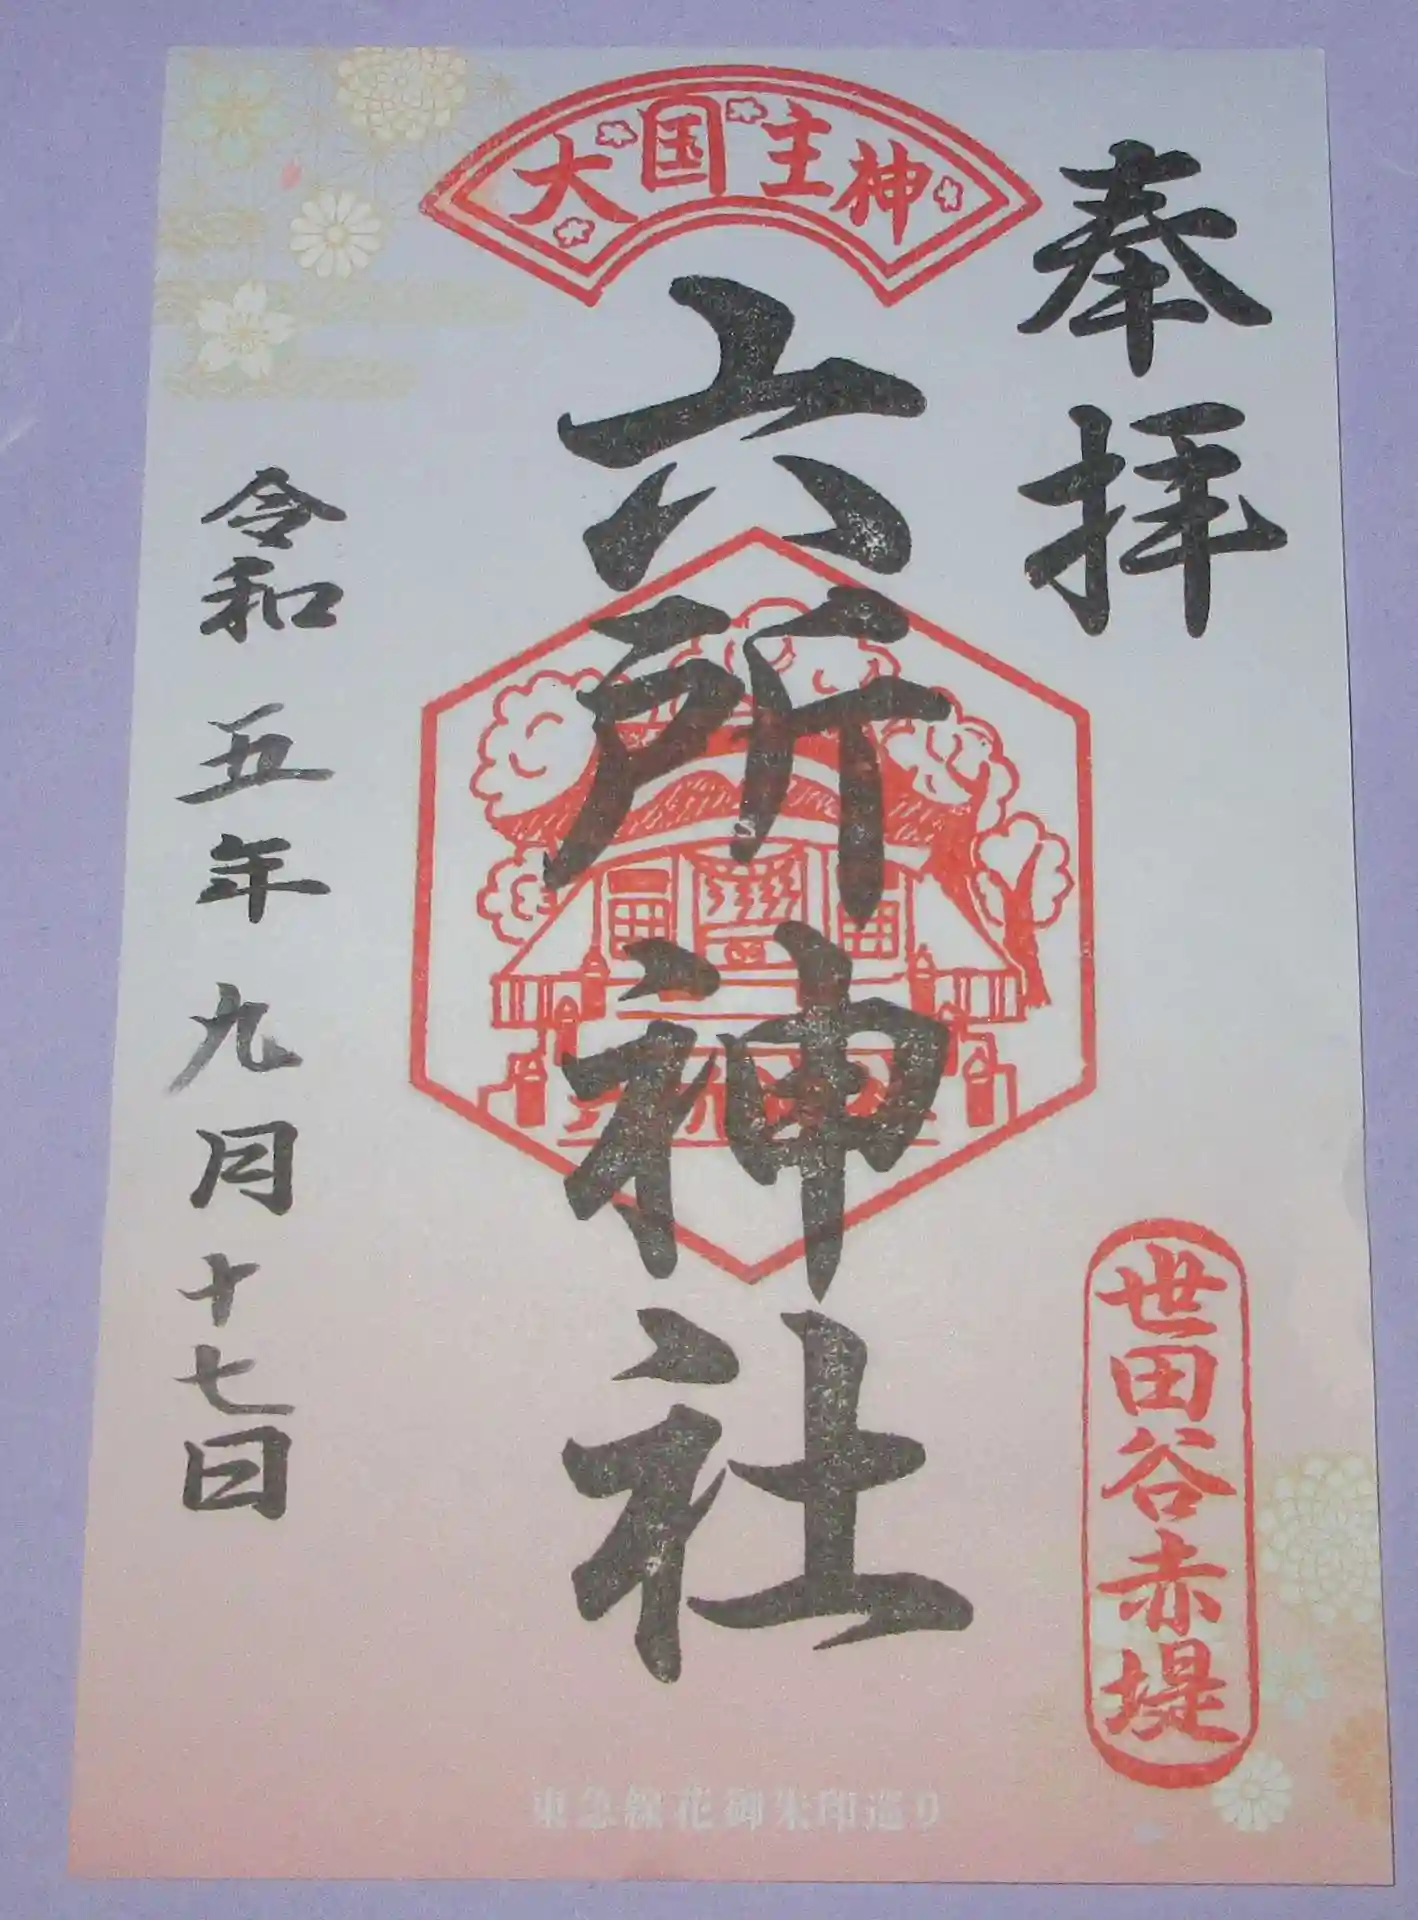 奉拝
大国主神
六所神社
世田谷赤堤
令和五年九月十七日
東急線花御朱印巡り